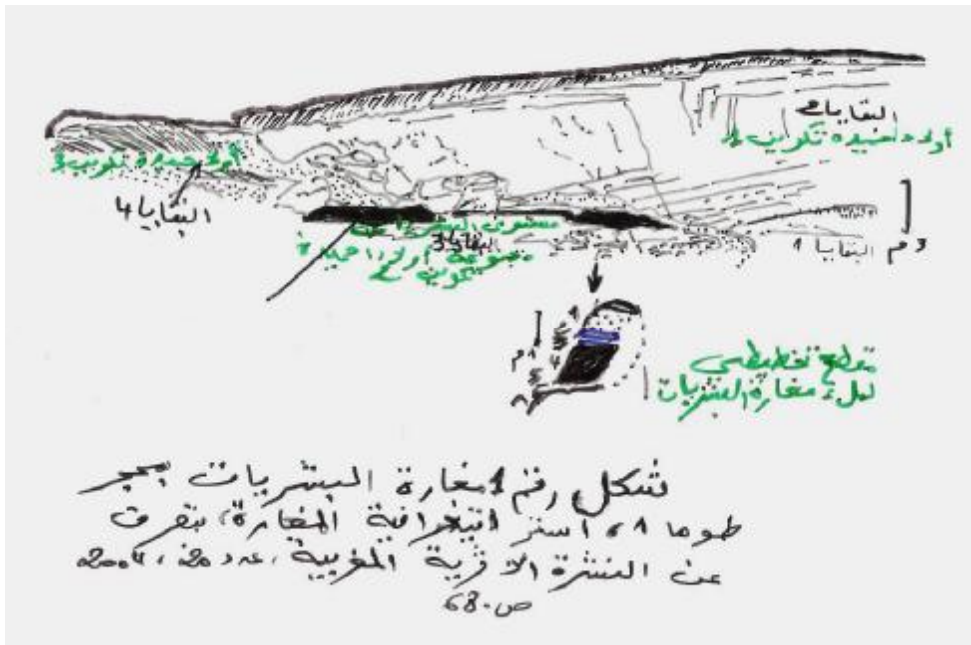 البقايا 2
أولاد حميدة تكوين 1
أولاد حميدة تكوين 3
البقايا 4
مستوى البشريات
البقايا 3
مجموعة أولاد حميدة
تكوين
البقايا 1
3 م
1 م
مقطع تخطيطي
لملء مغارة البشريات
شكل رقم 1 مغارة البشريات بحجر
طوما 1، استراتيغرافية المغارة، بتصرف
عن النشرة الأثرية المغربية، عدد 20، 2004
ص. 68